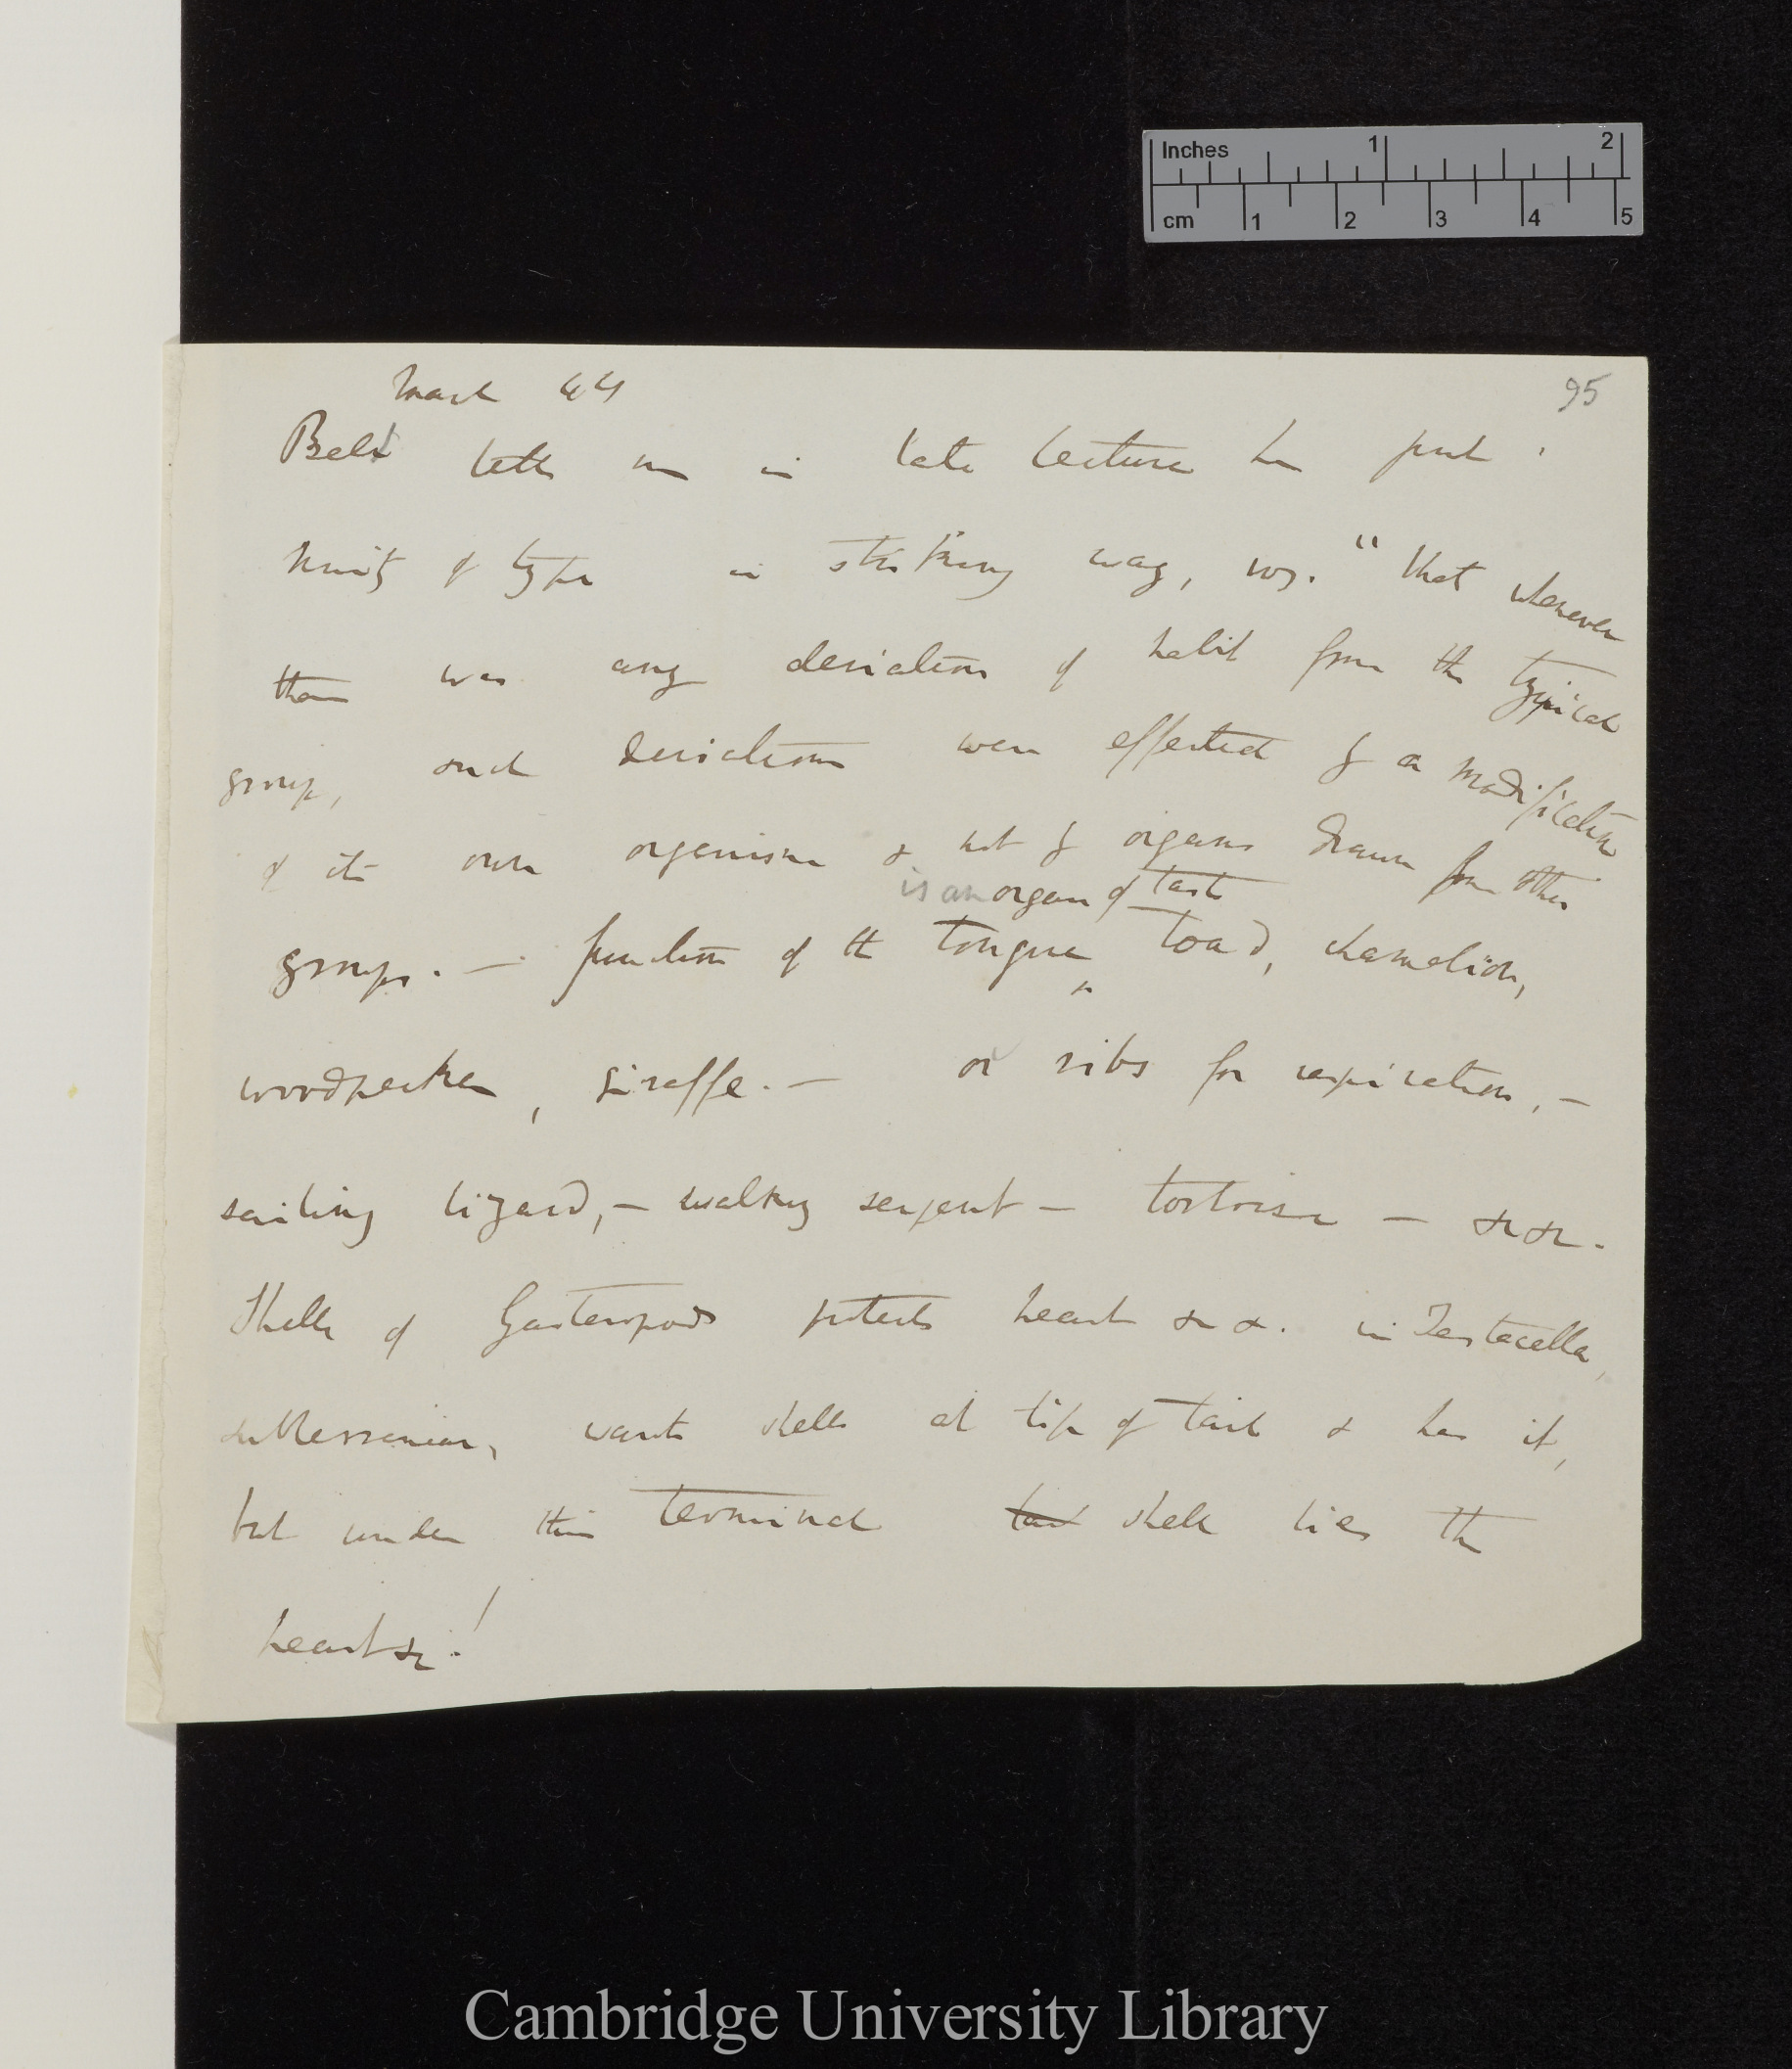 Inches 1 2
cm 1 2 3 4 5
95
March 44
Bell tells me in late lecture he put
Unity of type in striking way, viz. "that whenever
there was any deviation of habit from the typical
group, such deviations were effected by a modification
of its own organism & not by organs drawn from other
is an organ of taste
groups. — function of the tongue, toad, chamelion,
woodpecker, giraffe. — or ribs for respiration, —
sailing lizard, — walking serpent — tortoise — &c &c.
Shell of Gasteropods protects heart &c &. in Testacella,
subterranean, wants shell at tip of tail & has it,
but under this terminal tail shell lies the
heart &c.!
Cambridge University Library